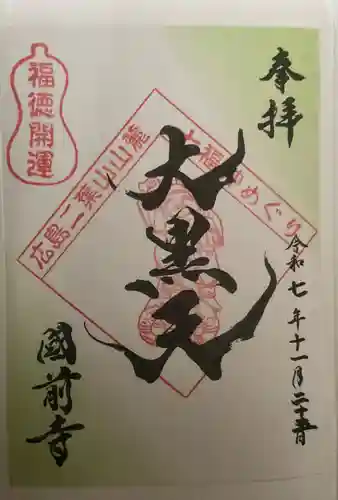 奉拝
令和七年十一月二十
大黒天
國前寺
福徳開運
広島二葉山山麓
七福神めぐり